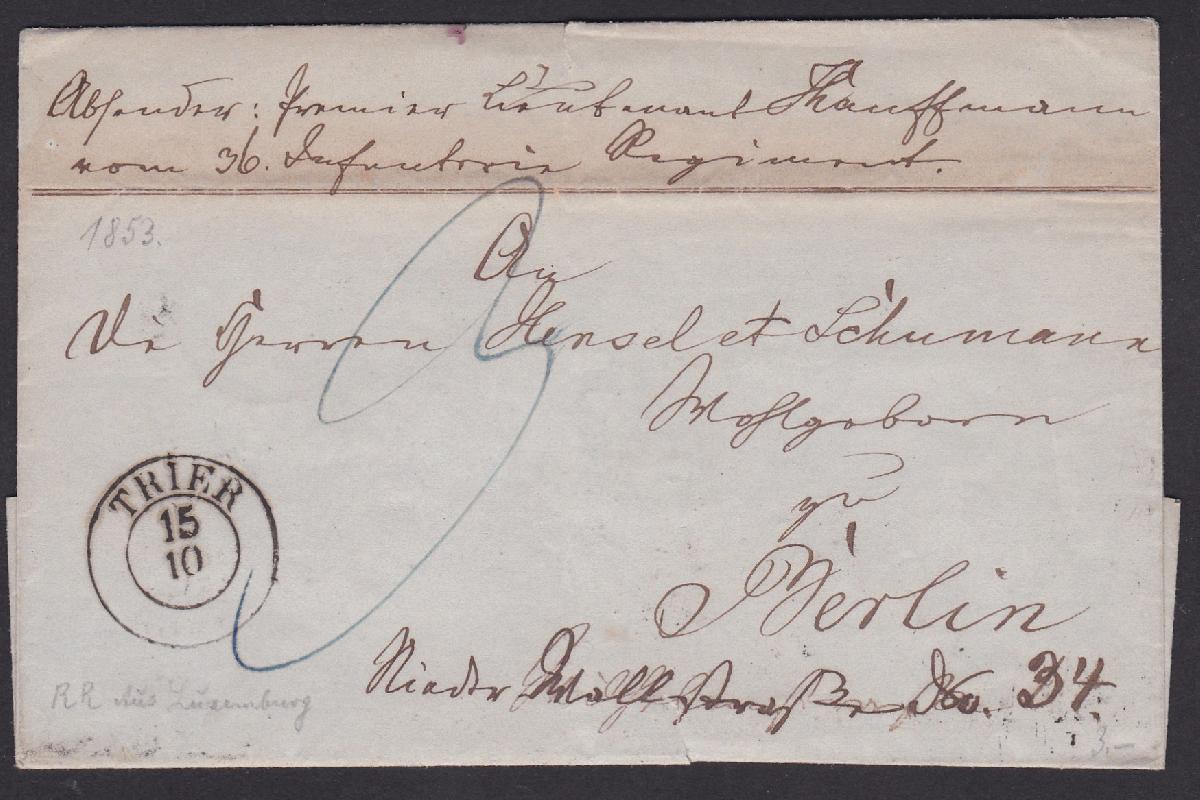 Absender: Premier Lieutenant Kauffmann
vom 36. Infanterie Regiment.
1853.
An
Die Herren Hensel et Schumann
Wohlgeborn
zu
Berlin
Nieder Wallstraße No. 34.
3
TRIER
15
10
RR aus Luxemburg
3.-